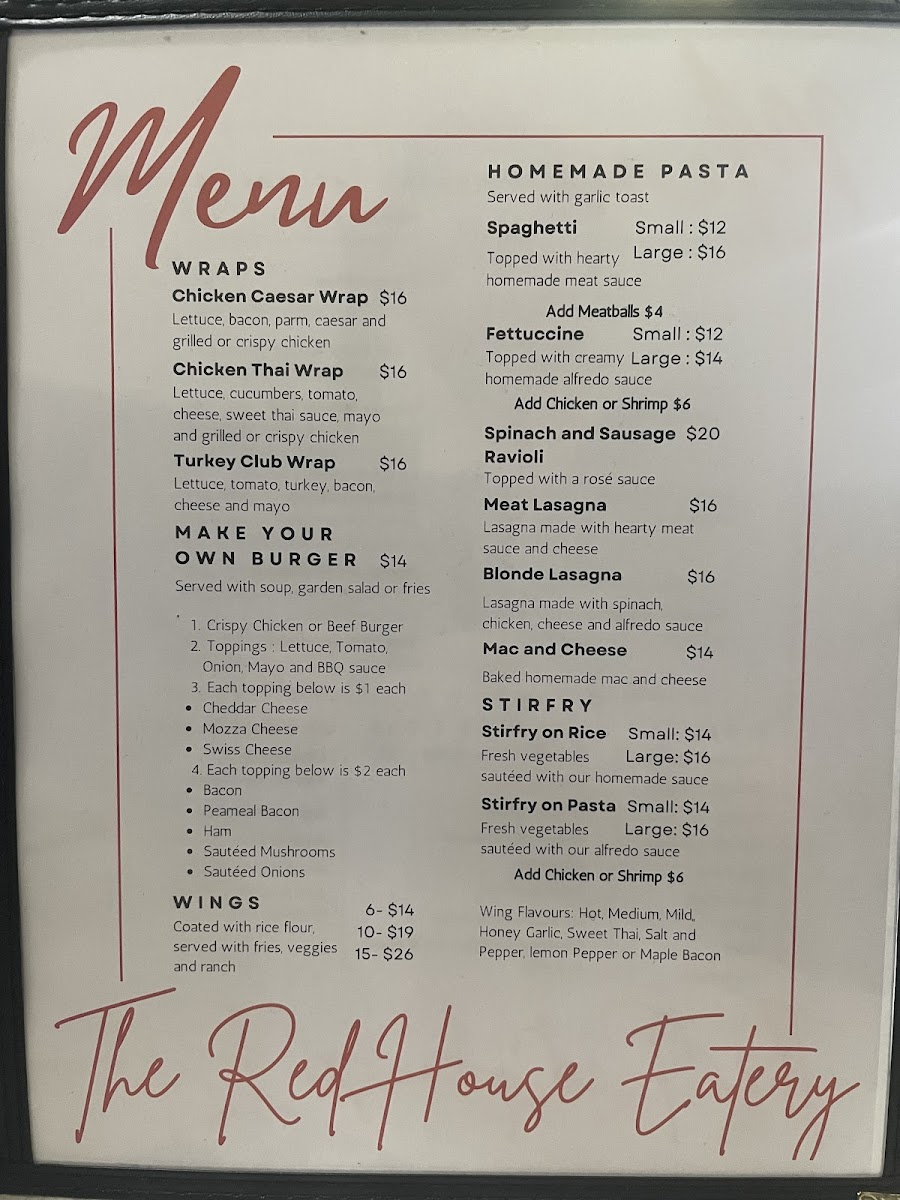 Menu
WRAPS
Chicken Caesar Wrap $16
Lettuce, bacon, parm, caesar and
grilled or crispy chicken
Chicken Thai Wrap $16
Lettuce, cucumbers, tomato,
cheese, sweet thai sauce, mayo
and grilled or crispy chicken
Turkey Club Wrap $16
Lettuce, tomato, turkey, bacon,
cheese and mayo
MAKE YOUR
OWN BURGER $14
Served with soup, garden salad or fries
1. Crispy Chicken or Beef Burger
2. Toppings : Lettuce, Tomato,
Onion, Mayo and BBQ sauce
3. Each topping below is $1 each
• Cheddar Cheese
• Mozza Cheese
• Swiss Cheese
4. Each topping below is $2 each
• Bacon
• Peameal Bacon
• Ham
• Sautéed Mushrooms
• Sautéed Onions
WINGS
6- $14
Coated with rice flour,
10- $19
served with fries, veggies
15- $26
and ranch
HOMEMADE PASTA
Served with garlic toast
Spaghetti Small : $12
Large : $16
Topped with hearty
homemade meat sauce
Add Meatballs $4
Fettuccine Small : $12
Topped with creamy Large : $14
homemade alfredo sauce
Add Chicken or Shrimp $6
Spinach and Sausage $20
Ravioli
Topped with a rosé sauce
Meat Lasagna $16
Lasagna made with hearty meat
sauce and cheese
Blonde Lasagna $16
Lasagna made with spinach,
chicken, cheese and alfredo sauce
Mac and Cheese $14
Baked homemade mac and cheese
STIRFRY
Stirfry on Rice Small: $14
Fresh vegetables Large: $16
sautéed with our homemade sauce
Stirfry on Pasta Small: $14
Fresh vegetables Large: $16
sautéed with our alfredo sauce
Add Chicken or Shrimp $6
Wing Flavours: Hot, Medium, Mild,
Honey Garlic, Sweet Thai, Salt and
Pepper, lemon Pepper or Maple Bacon
The RedHouse Eatery